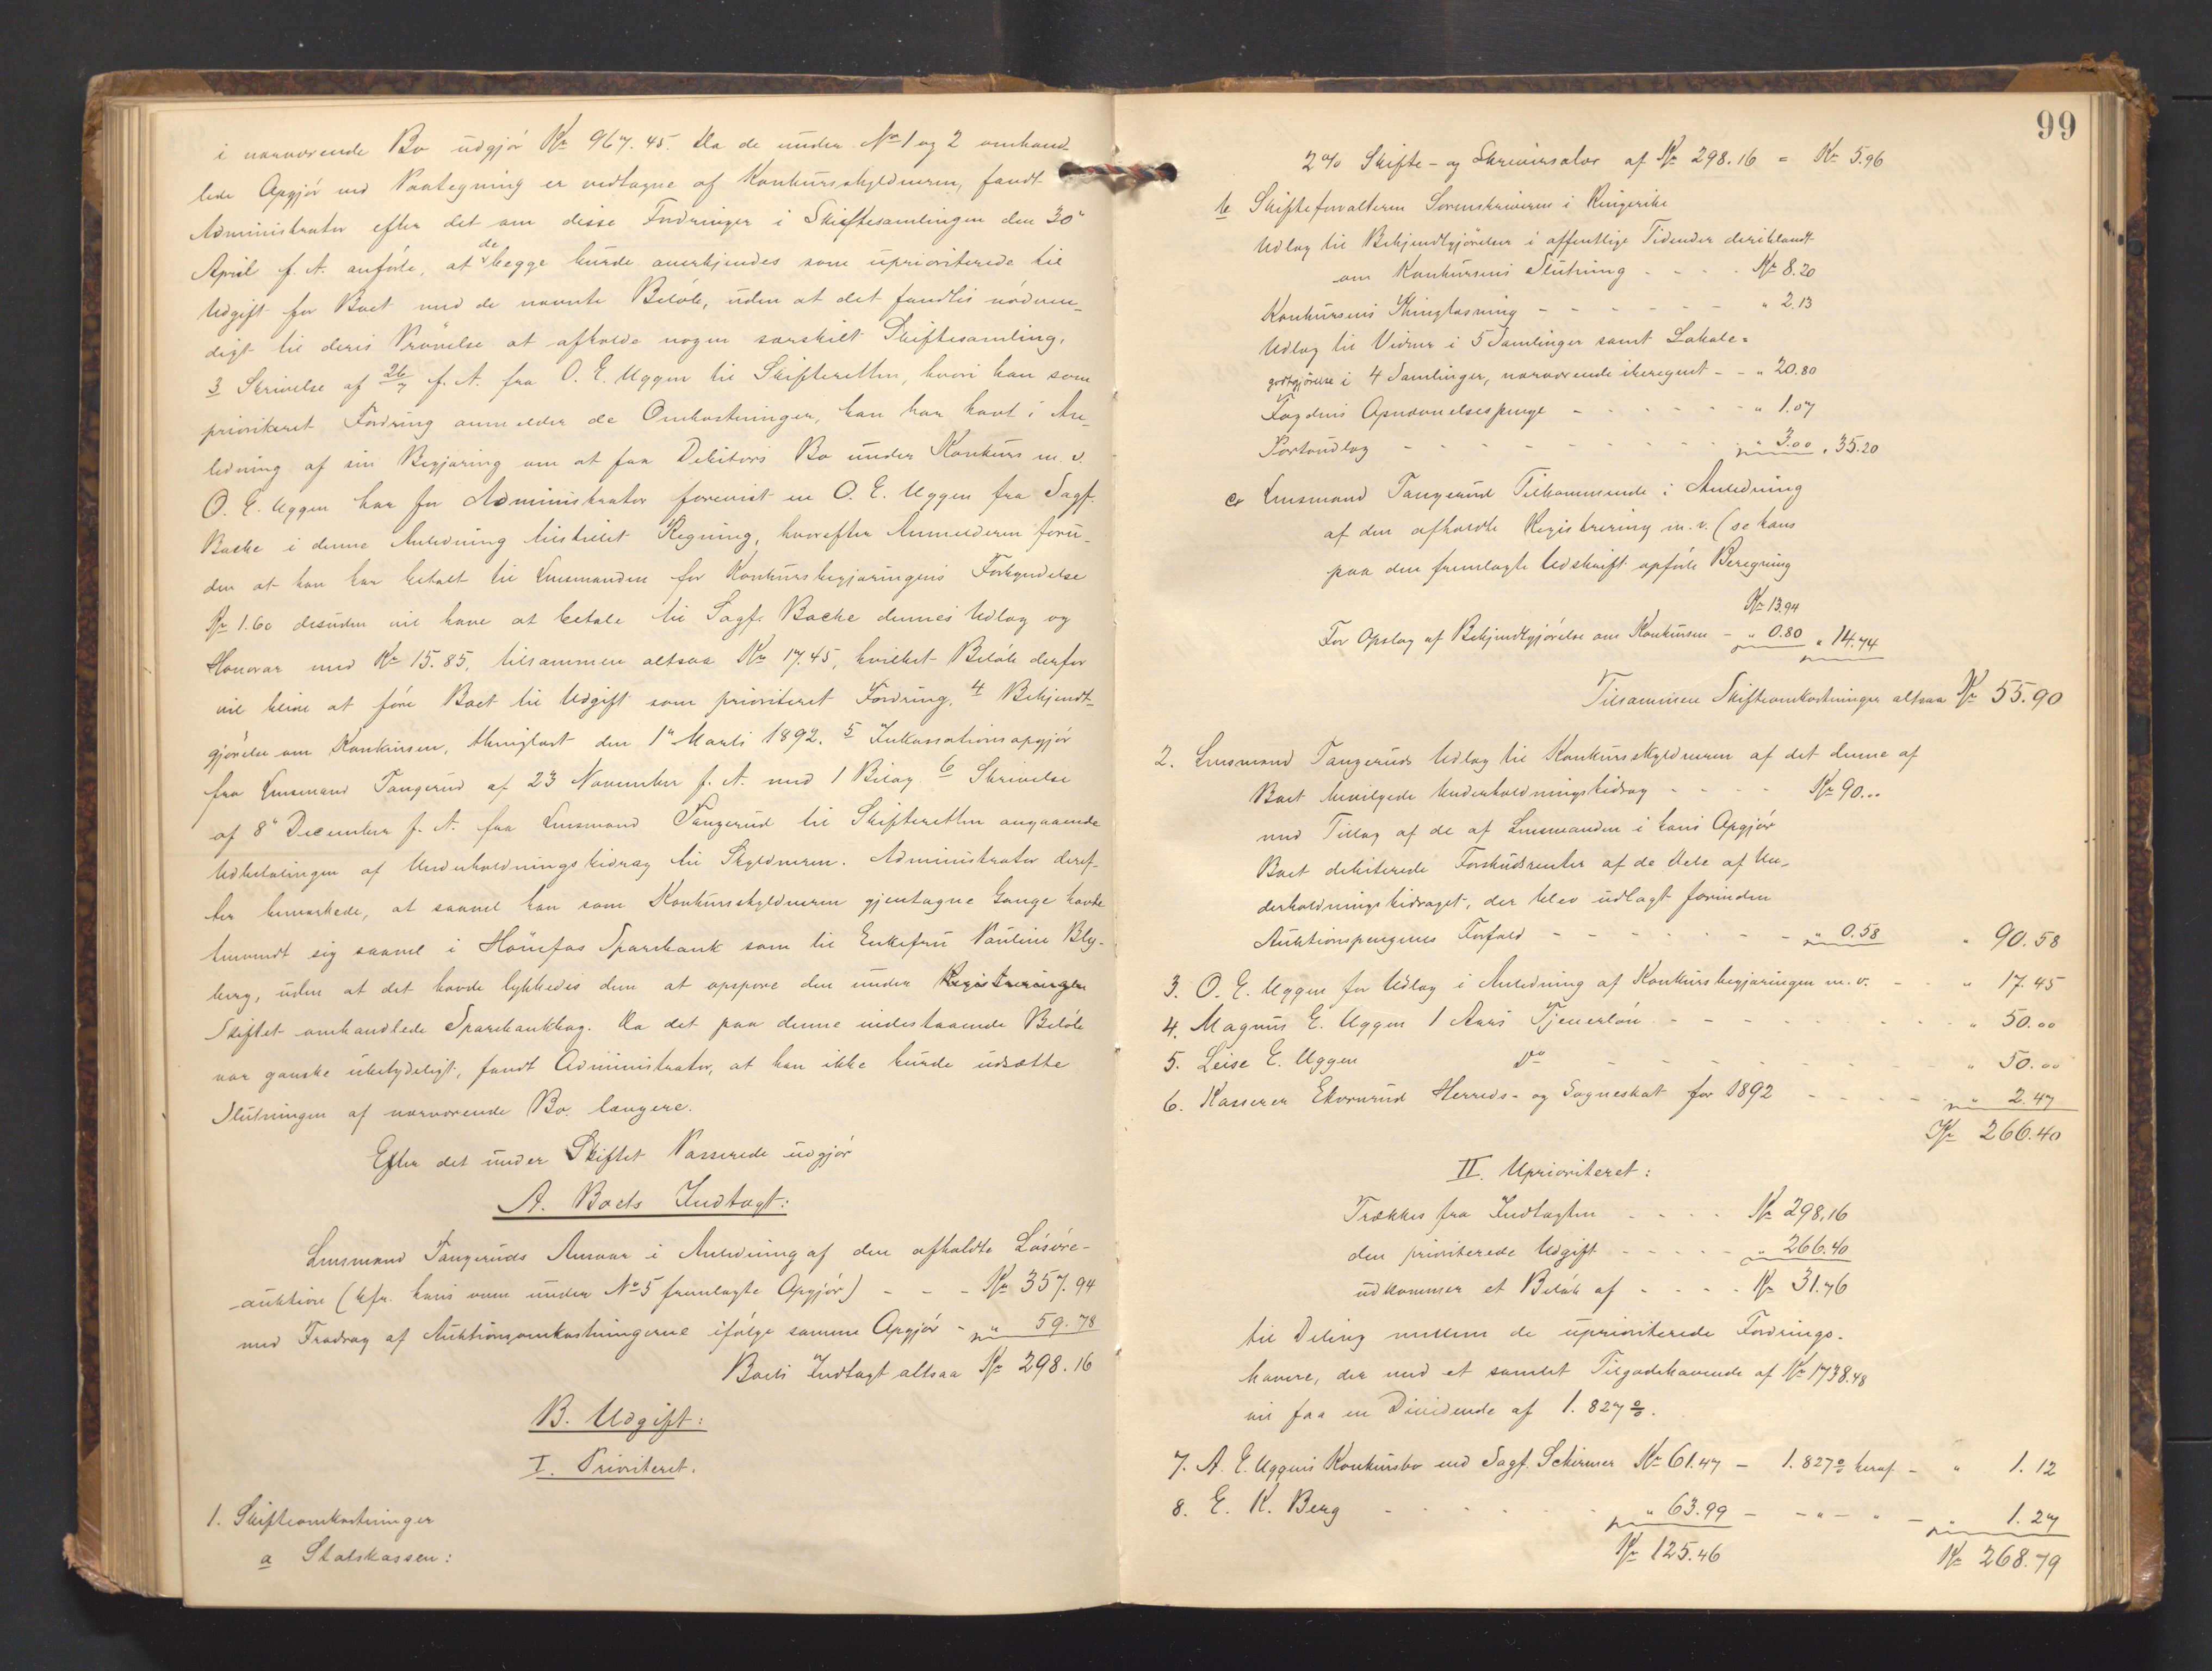 i nærværende Bo udgjör Kr 967.45. Da de under No 1 og 2 omhand-
lede Opgjör ved Paategning er vedtagne af Konkursskyldneren, fandt
Administrator efter det om disse Fordringer i Skiftesamlingen den 30te
April f. A. anförte, at de begge burde anerkjendes som uprioriterede til
Udgift for Boet med de nævnte Belöb, uden at det fandtes nödven-
digt til deres Prövelse at afholde nogen særskilt Skiftesamling.
3 Skrivelse af 26/7 f. A. fra O. E. Uggen til Skifteretten, hvori han som
prioriteret Fordring anmelder de Omkostninger, han har havt i An-
ledning af sin Begjæring om at faa Debitors Bo under Konkurs m. v.
O. E. Uggen har for Administrator forevist en O. E. Uggen fra Sagf.
Backe i denne Anledning tilstillet Regning, hvorefter Anmelderen foru-
den at han har betalt til Lensmanden for Konkursbegjæringens Forkyndelse
Kr 1.60 desuden vil have at betale til Sagf. Backe dennes Udlæg og
Honorar med Kr 15.85, tilsammen altsaa Kr 17.45, hvilket Belöb derfor
vil blive at före Boet til Udgift som prioriteret Fordring. 4 Bekjendt-
gjörelse om Konkursen, thinglæst den 1te Marts 1892. 5 Inkassationsopgjör
fra Lensmand Tangerud af 23 November f. A. med 1 Bilag. 6 Skrivelse
af 8de December f. A. fra Lensmand Tangerud til Skifteretten angaaende
Udbetalingen af Underholdningsbidrag til Skyldneren. Administrator deref-
ter bemærkede, at saavel han som Konkursskyldneren gjentagne Gange havde
henvendt sig saavel i Hönefos Sparebank som til Enkefru Pauline Bly-
berg, uden at det havde lykkedes dem at opspore den under Registreringen
Skiftet omhandlede Sparebankbog. Da det paa denne indestaaende Belöb
var ganske ubetydeligt, fandt Administrator, at han ikke burde udsætte
Slutningen af nærværende Bo længere.
Efter det under Skiftet Passerede udgjör
A. Boets Indtægt:
Lensmand Tangeruds Ansvar i Anledning af den afholdte Lösöre-
auktion (kfr. hans oven under No 5 fremlagte Opgjör) - - - Kr 357.94
med Fradrag af Auktionsomkostningerne ifölge samme Opgjör - " 59.78
Boets Indtægt altsaa Kr 298.16
B. Udgift:
I. Prioriteret.
1. Skifteomkostninger
a Statskassen:
99
2 % Skifte- og Skriversalær af Kr 298.16 = Kr 5.96
b Skifteforvalteren Sorenskriveren i Ringerike
Udlæg til Bekjendtgjörelser i offentlige Tidender deriblandt
om Konkursens Slutning - - - - Kr 8.20
Konkursens Thinglæsning - - - - - - " 2.13
Udlæg til Vidner i 5 Samlinger samt Lokale-
godtgjörelse i 4 Samlinger, nærværende iberegnet - - " 20.80
Fogdens Opnævnelsespenge - - - - - - " 1.07
Portoudlæg - - - - - - - - - " 3.00 " 35.20
c Lensmand Tangerud Tilkommende i Anledning
af den afholdte Registrering m. v. (se hans
paa den fremlagte Udskrift opförte Beregning
Kr 13.94
For Opslag af Bekjendtgjörelse om Konkursen - " 0.80 " 14.74
Tilsammen Skifteomkostninger altsaa Kr 55.90
2. Lensmand Tangeruds Udlæg til Konkursskyldneren af det denne af
Boet bevilgede Underholdningsbidrag - - - - Kr 90.00
med Tillæg af de af Lensmanden i hans Opgjör
Boet debiterede Forskudsrenter af de Dele af Un-
derholdningsbidraget, der blev udlagt forinden
Auktionspengenes Forfald - - - - - - - " 0.58 " 90.58
3. O. E. Uggen for Udlæg i Anledning af Konkursbegjæringen m. v. - - " 17.45
4. Magnus E. Uggen 1 Aars Tjenerlön - - - - - - - - " 50.00
5. Leise E. Uggen Do - - - - - - - - " 50.00
6. Kasserer Ekornrud Herreds- og Sogneskat for 1892 - - - - - " 2.47
Kr 266.40
II. Uprioriteret:
Trækkes fra Indtægten - - - - Kr 298,16
den prioriterede Udgift - - - - - " 266.40
udkommer et Belöb af - - - - Kr 31.76
til Deling mellem de uprioriterede Fordrings-
havere, der med et samlet Tilgodehavende af Kr 1738.48
vil faa en Dividende af 1.827 %.
7. A. E. Uggens Konkursbo ved Sagf. Schirmer Kr 61.47 - 1.827 % heraf - " 1.12
8. E. K. Berg - - - - - - " 63.99 - - " - " - " 1.27
Kr 125.46 Kr 268.79